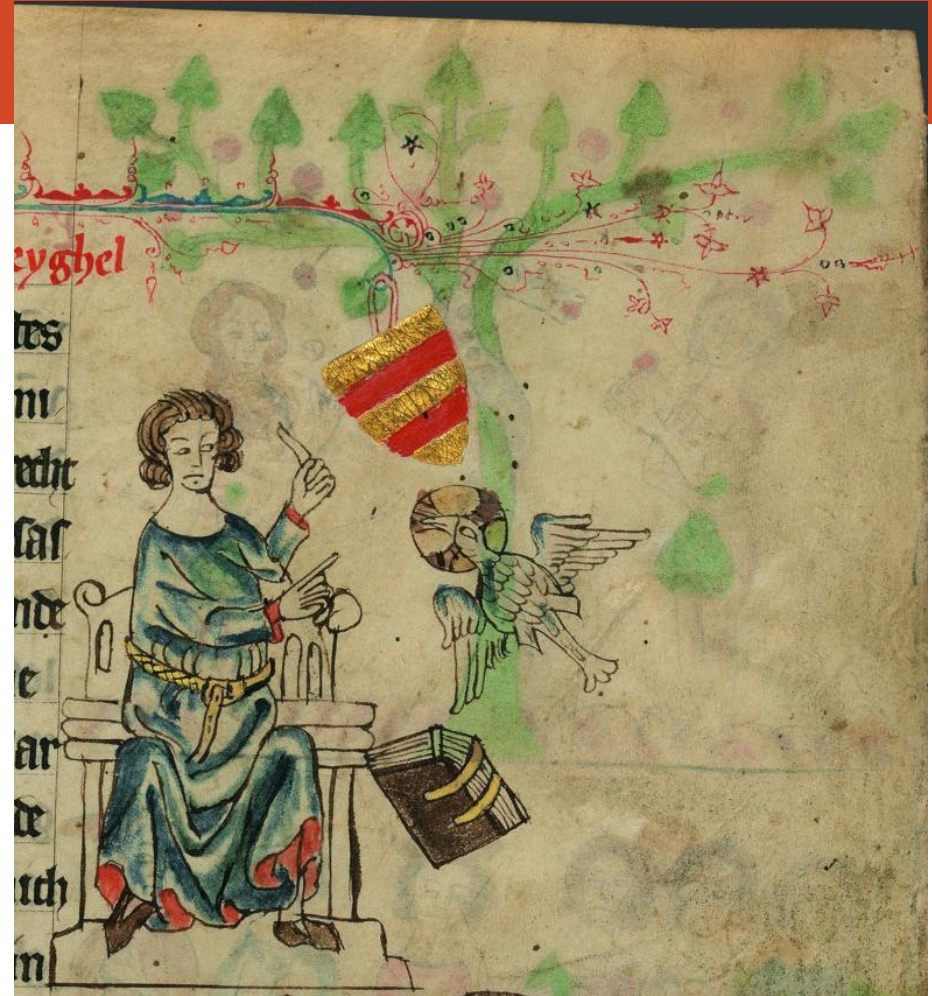 eyghel
tes
mi
recht
sas
nde
e
ar
de
ich
in